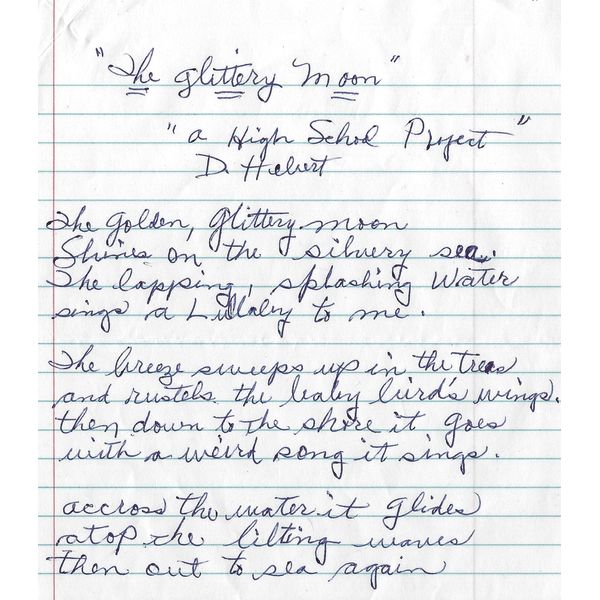 "The glittery Moon"
"a High School Project"
D. Hebert
The Golden, Glittery moon
Shines on the silvery sea.
The lapping, splashing Water
sings a Lullaby to me.
The breeze sweeps up in the trees
and rustels the baby bird's wings.
then down to the shore it goes
with a weird song it sings.
accross the water it glides
atop the lilting waves
then out to sea again